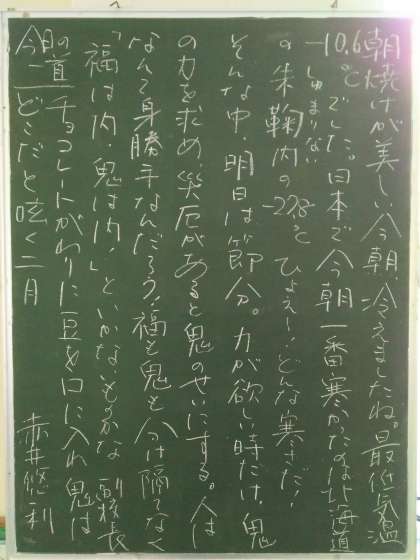 朝焼けが美しい今朝 冷えましたね。最低気温
-10.6℃でした。日本で今朝一番寒かったのは北海道
しゅまりない
の朱鞠内の-27.8℃ ひょえ〜!どんな寒さだ!
そんな中、明日は節分。力が欲しい時だけ、鬼
の力を求め、災厄があると鬼のせいにする。人は
なんて身勝手なんだろう!福と鬼と分け隔てなく
「福は内・鬼は内!」といかないものかな 副校長
チョコレートがわりに豆を口に入れ 鬼は
どこだと呟く二月 赤井悠利